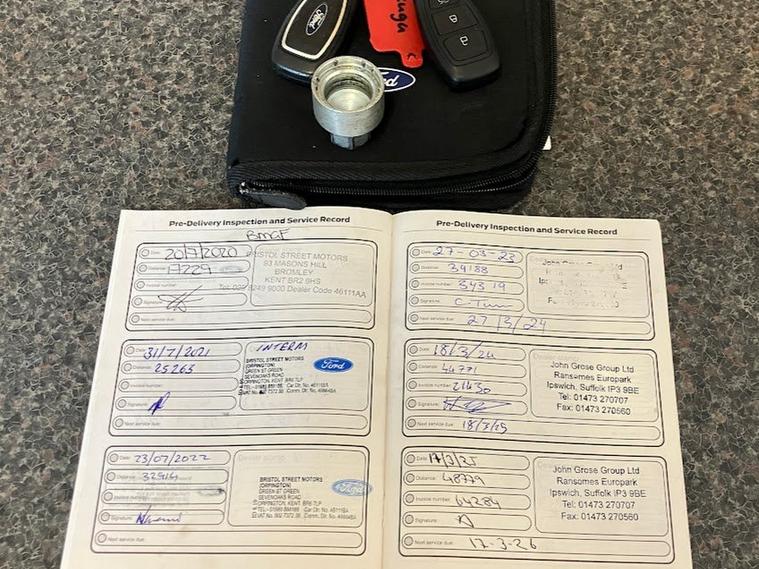 Ford
Ford
Pre-Delivery Inspection and Service Record
BMGF
Date: 20/7/2020
Distance: 17229
Invoice number:
Signature:
Next service due:
BRISTOL STREET MOTORS
93 MASONS HILL
BROMLEY
KENT BR2 9HS
Tel: 020 8249 9000 Dealer Code 46111AA
Date: 31/7/2021
Distance: 25265
Invoice number:
Signature:
Next service due:
INTERM
BRISTOL STREET MOTORS
(ORPINGTON)
GREEN ST GREEN
SEVENOAKS ROAD
ORPINGTON, KENT BR6 7LP
Ford
Date: 23/07/2022
Distance:
Invoice number:
Signature:
Next service due:
BRISTOL STREET MOTORS
(ORPINGTON)
GREEN ST GREEN
SEVENOAKS ROAD
ORPINGTON, KENT BR6 7LP
Ford
Pre-Delivery Inspection and Service Record
Date: 27-03-23
Distance: 39188
Invoice number: 34319
Signature:
Next service due: 27/3/24
John Grose Ltd
Date: 18/3/24
Distance: 44771
Invoice number: 21430
Signature:
Next service due: 18/3/25
John Grose Group Ltd
Ransomes Europark
Ipswich, Suffolk IP3 9BE
Tel: 01473 270707
Fax: 01473 270560
Date: 17/3/25
Distance: 48779
Invoice number: 64284
Signature:
Next service due: 17-3-26
John Grose Group Ltd
Ransomes Europark
Ipswich, Suffolk IP3 9BE
Tel: 01473 270707
Fax: 01473 270560